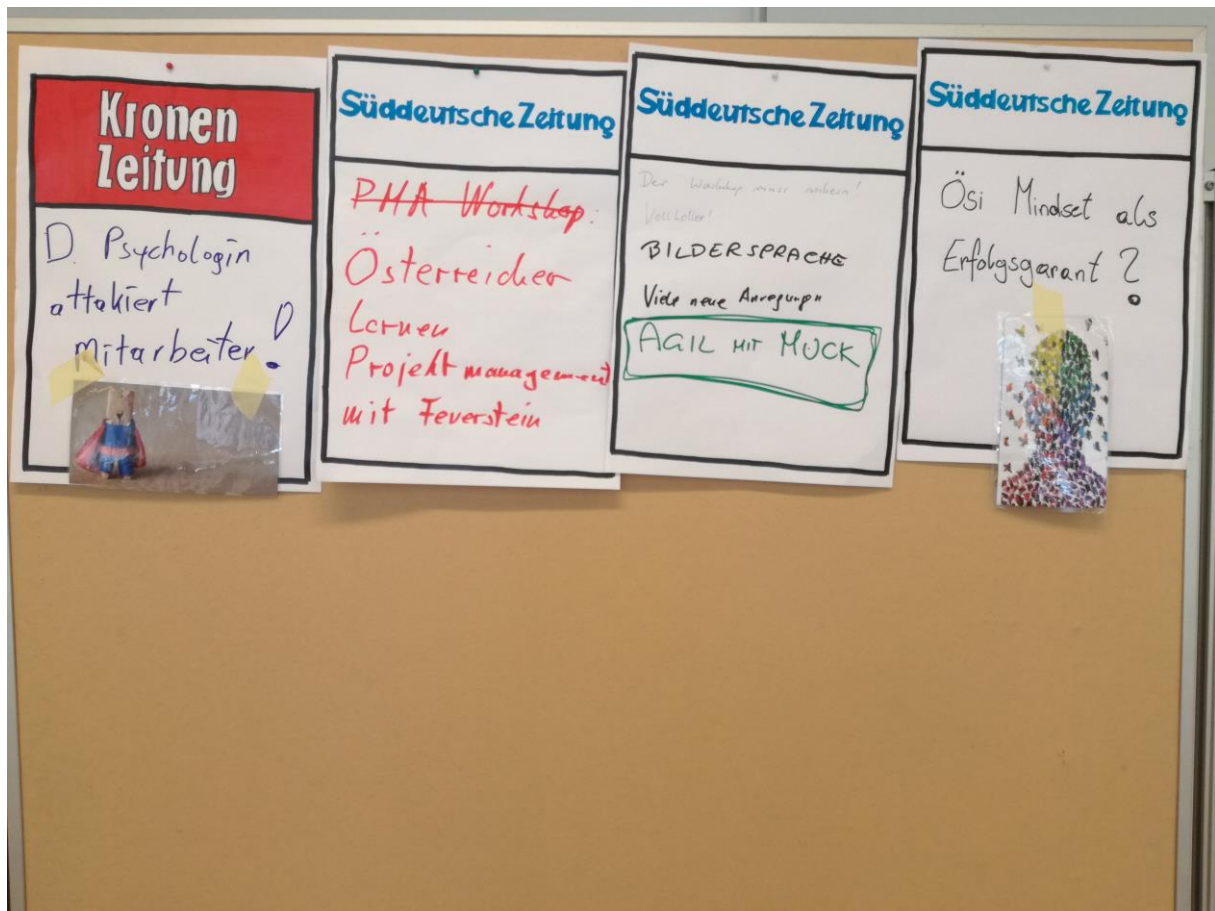 Kronen
Zeitung
D. Psychologin
attakiert
Mitarbeiter!
Süddeutsche Zeitung
PMA Workshop:
Österreicher
Lernen
Projektmanagement
mit Feuerstein
Süddeutsche Zeitung
Der Workshop muss
Voll koller!
BILDERSPRACHE
Viele neue Anregungen
AGIL MIT MUCK
Süddeutsche Zeitung
Ösi Mindset als
Erfolgsgarant?